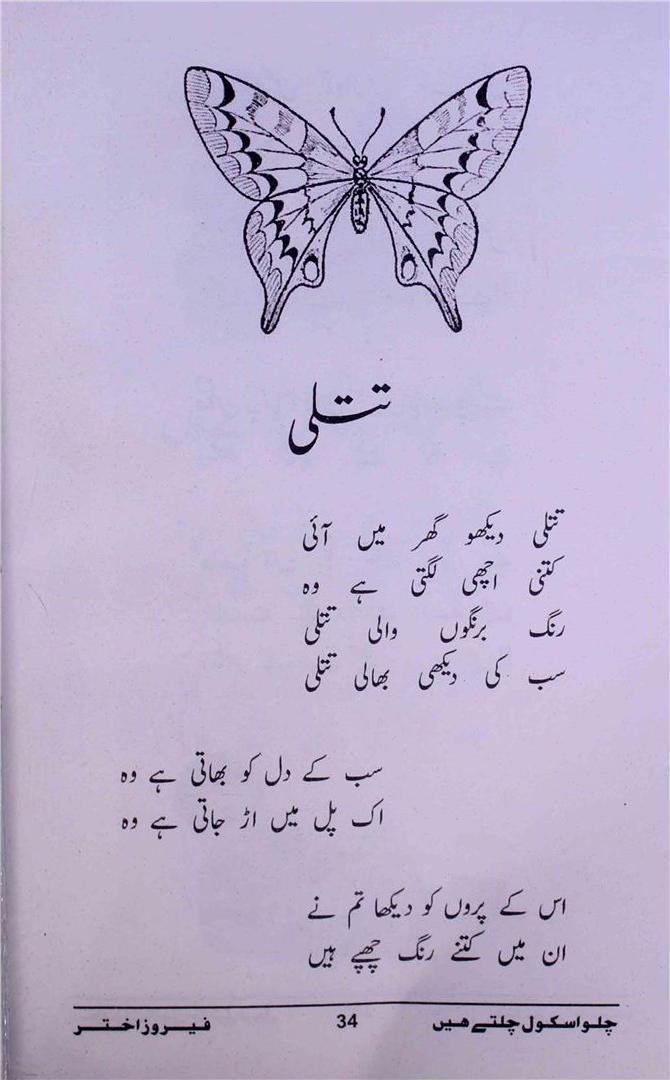 تتلی
تتلی دیکھو گھر میں آئی
کتنی اچھی لگتی ہے وہ
رنگ برنگوں والی تتلی
سب کی دیکھی بھالی تتلی
سب کے دل کو بھاتی ہے وہ
اک پل میں اڑ جاتی ہے وہ
اس کے پروں کو دیکھا تم نے
ان میں کتنے رنگ چھپے ہیں
چلو اسکول چلتے ہیں 34 فیروز اختر